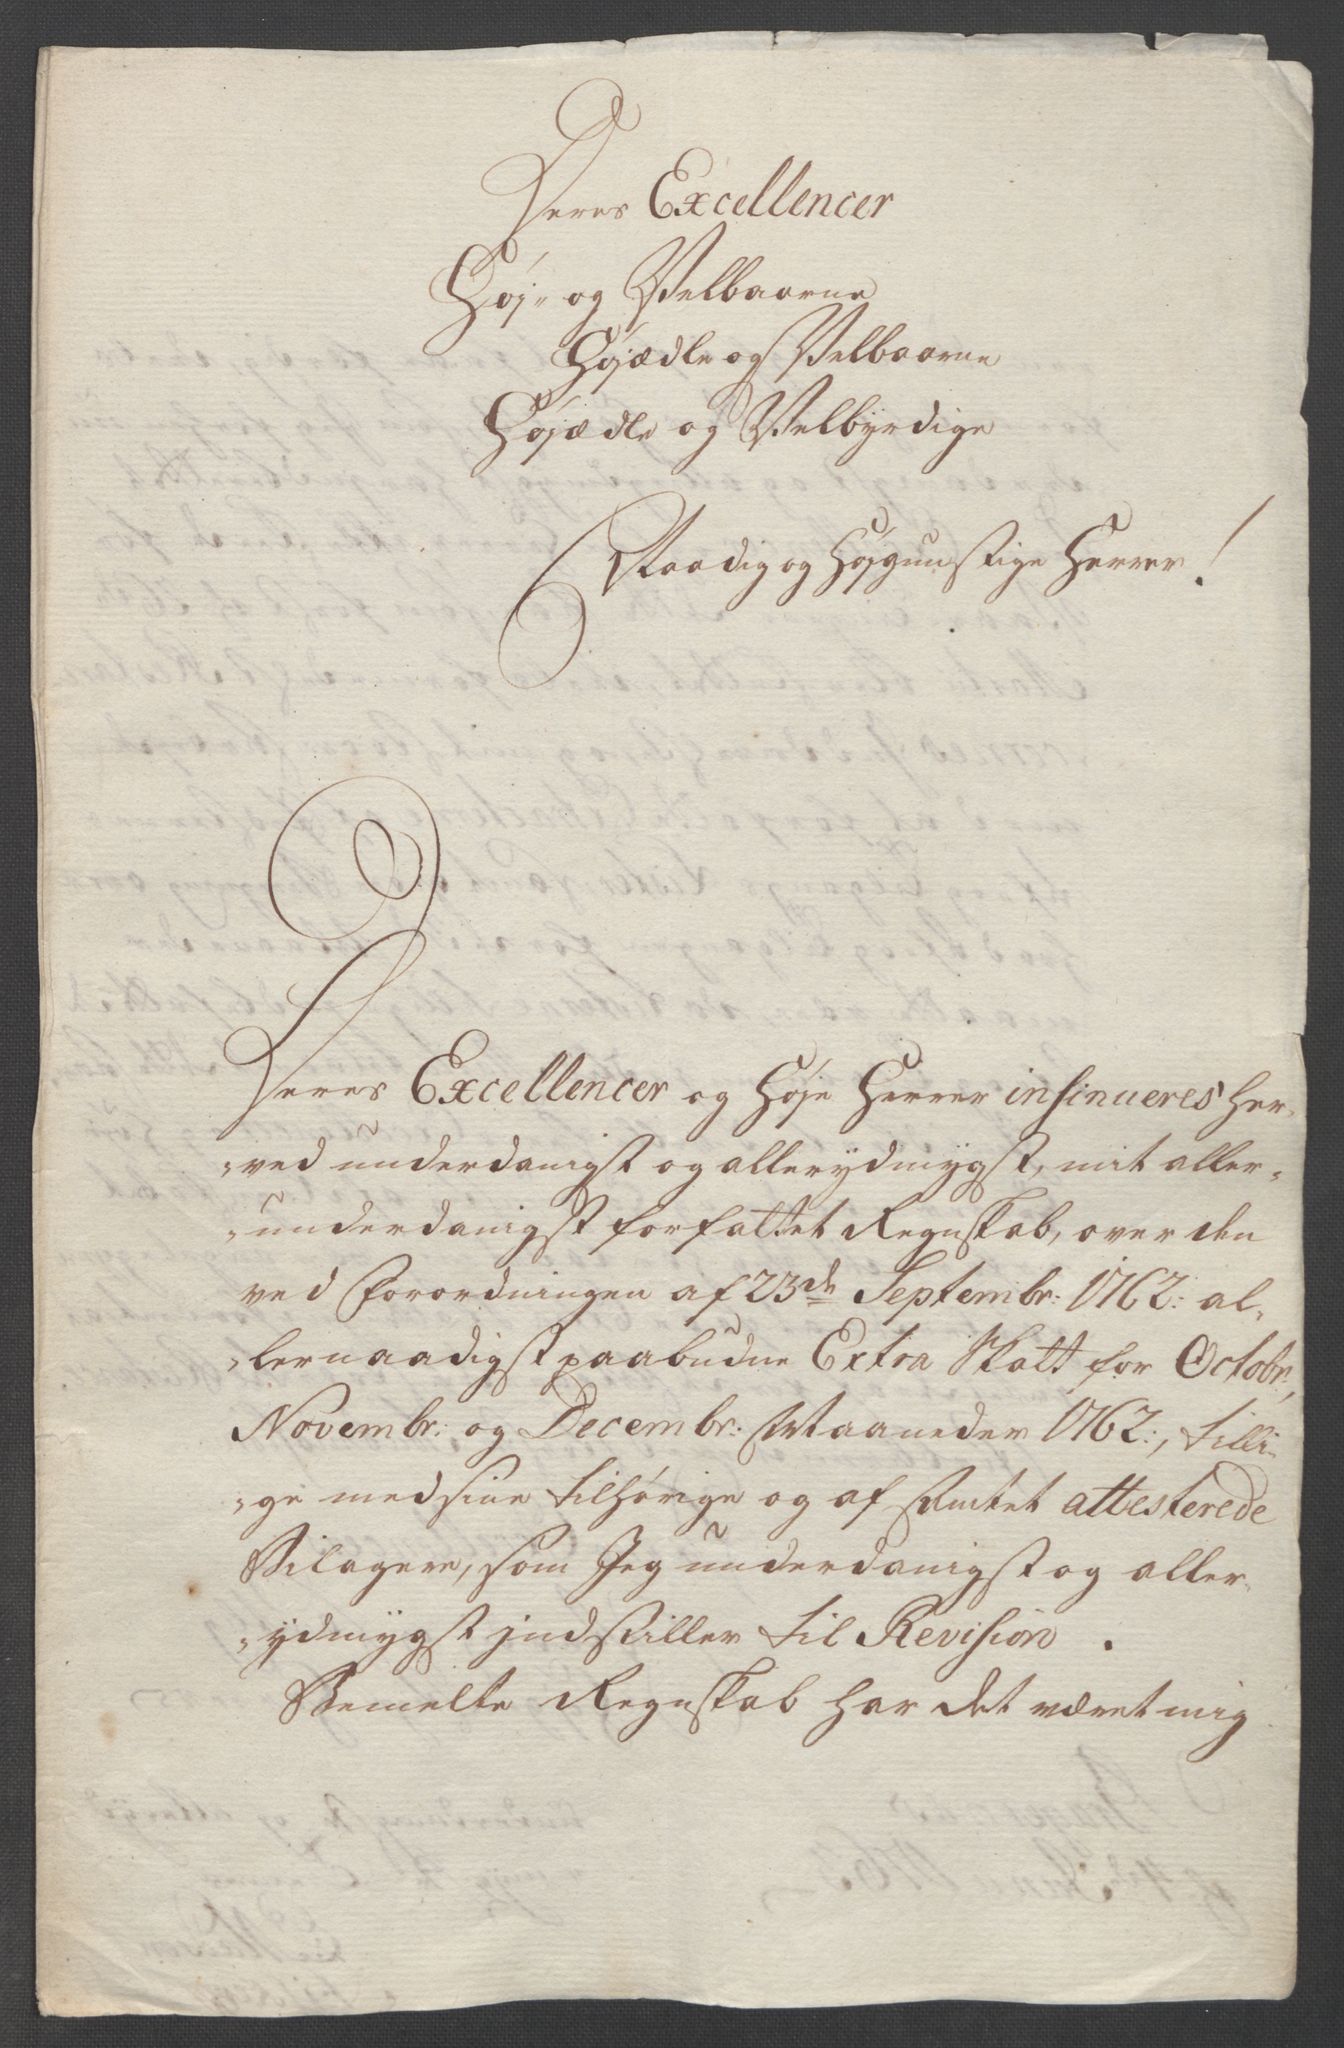 Deres Excellencer
Høj- og Velbaarne
Højædle og Velbaarne
Højædle og Velbyrdige
Naadig og Højgunstige Herrer!
Deres Excellencer og Høje Herrer insinueres her-
-ved underdanigst og allerydmygst, mit aller-
-underdanigst forfattet Regnskab, over den
ved Forordningen af 23de Septembr: 1762: al-
-lernaadigst paabudne Extra Skatt for Octobr,
Novembr: og Decembr: Maaneder 1762:, tilli-
-ge med sine tilhørige og af Amtet attesterede
Bilagere, som Jeg underdanigst og aller-
-ydmygst jndstiller til Revision.
Bemelte Regnskab har det været mig